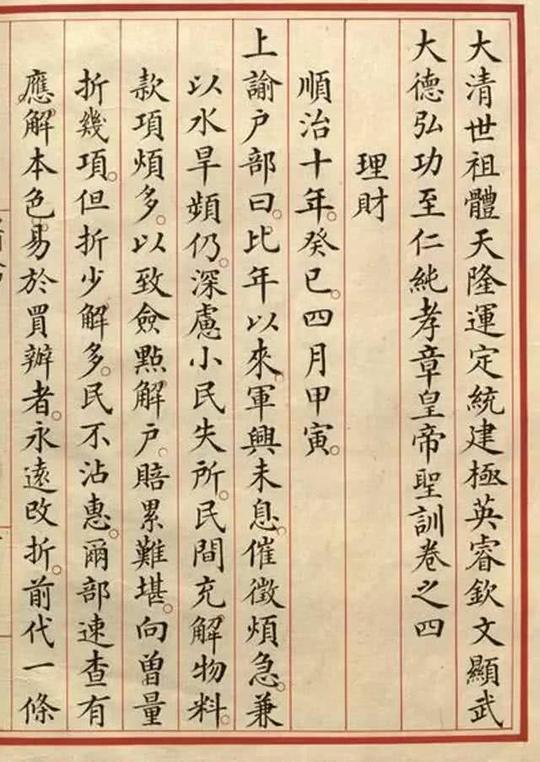 大清世祖體天隆運定統建極英睿欽文顯武
大德弘功至仁純孝章皇帝聖訓卷之四
理財
順治十年。癸巳。四月甲寅。
上諭户部曰。比年以來。軍興未息。催徵煩急。兼
以水旱頻仍。深慮小民失所。民間充解物料。
款項煩多。以致僉點解户。賠累難堪。向曾量
折幾項。但折少解多。民不沾惠。爾部速查有
應解本色。易於買辦者。永遠改折。前代一條